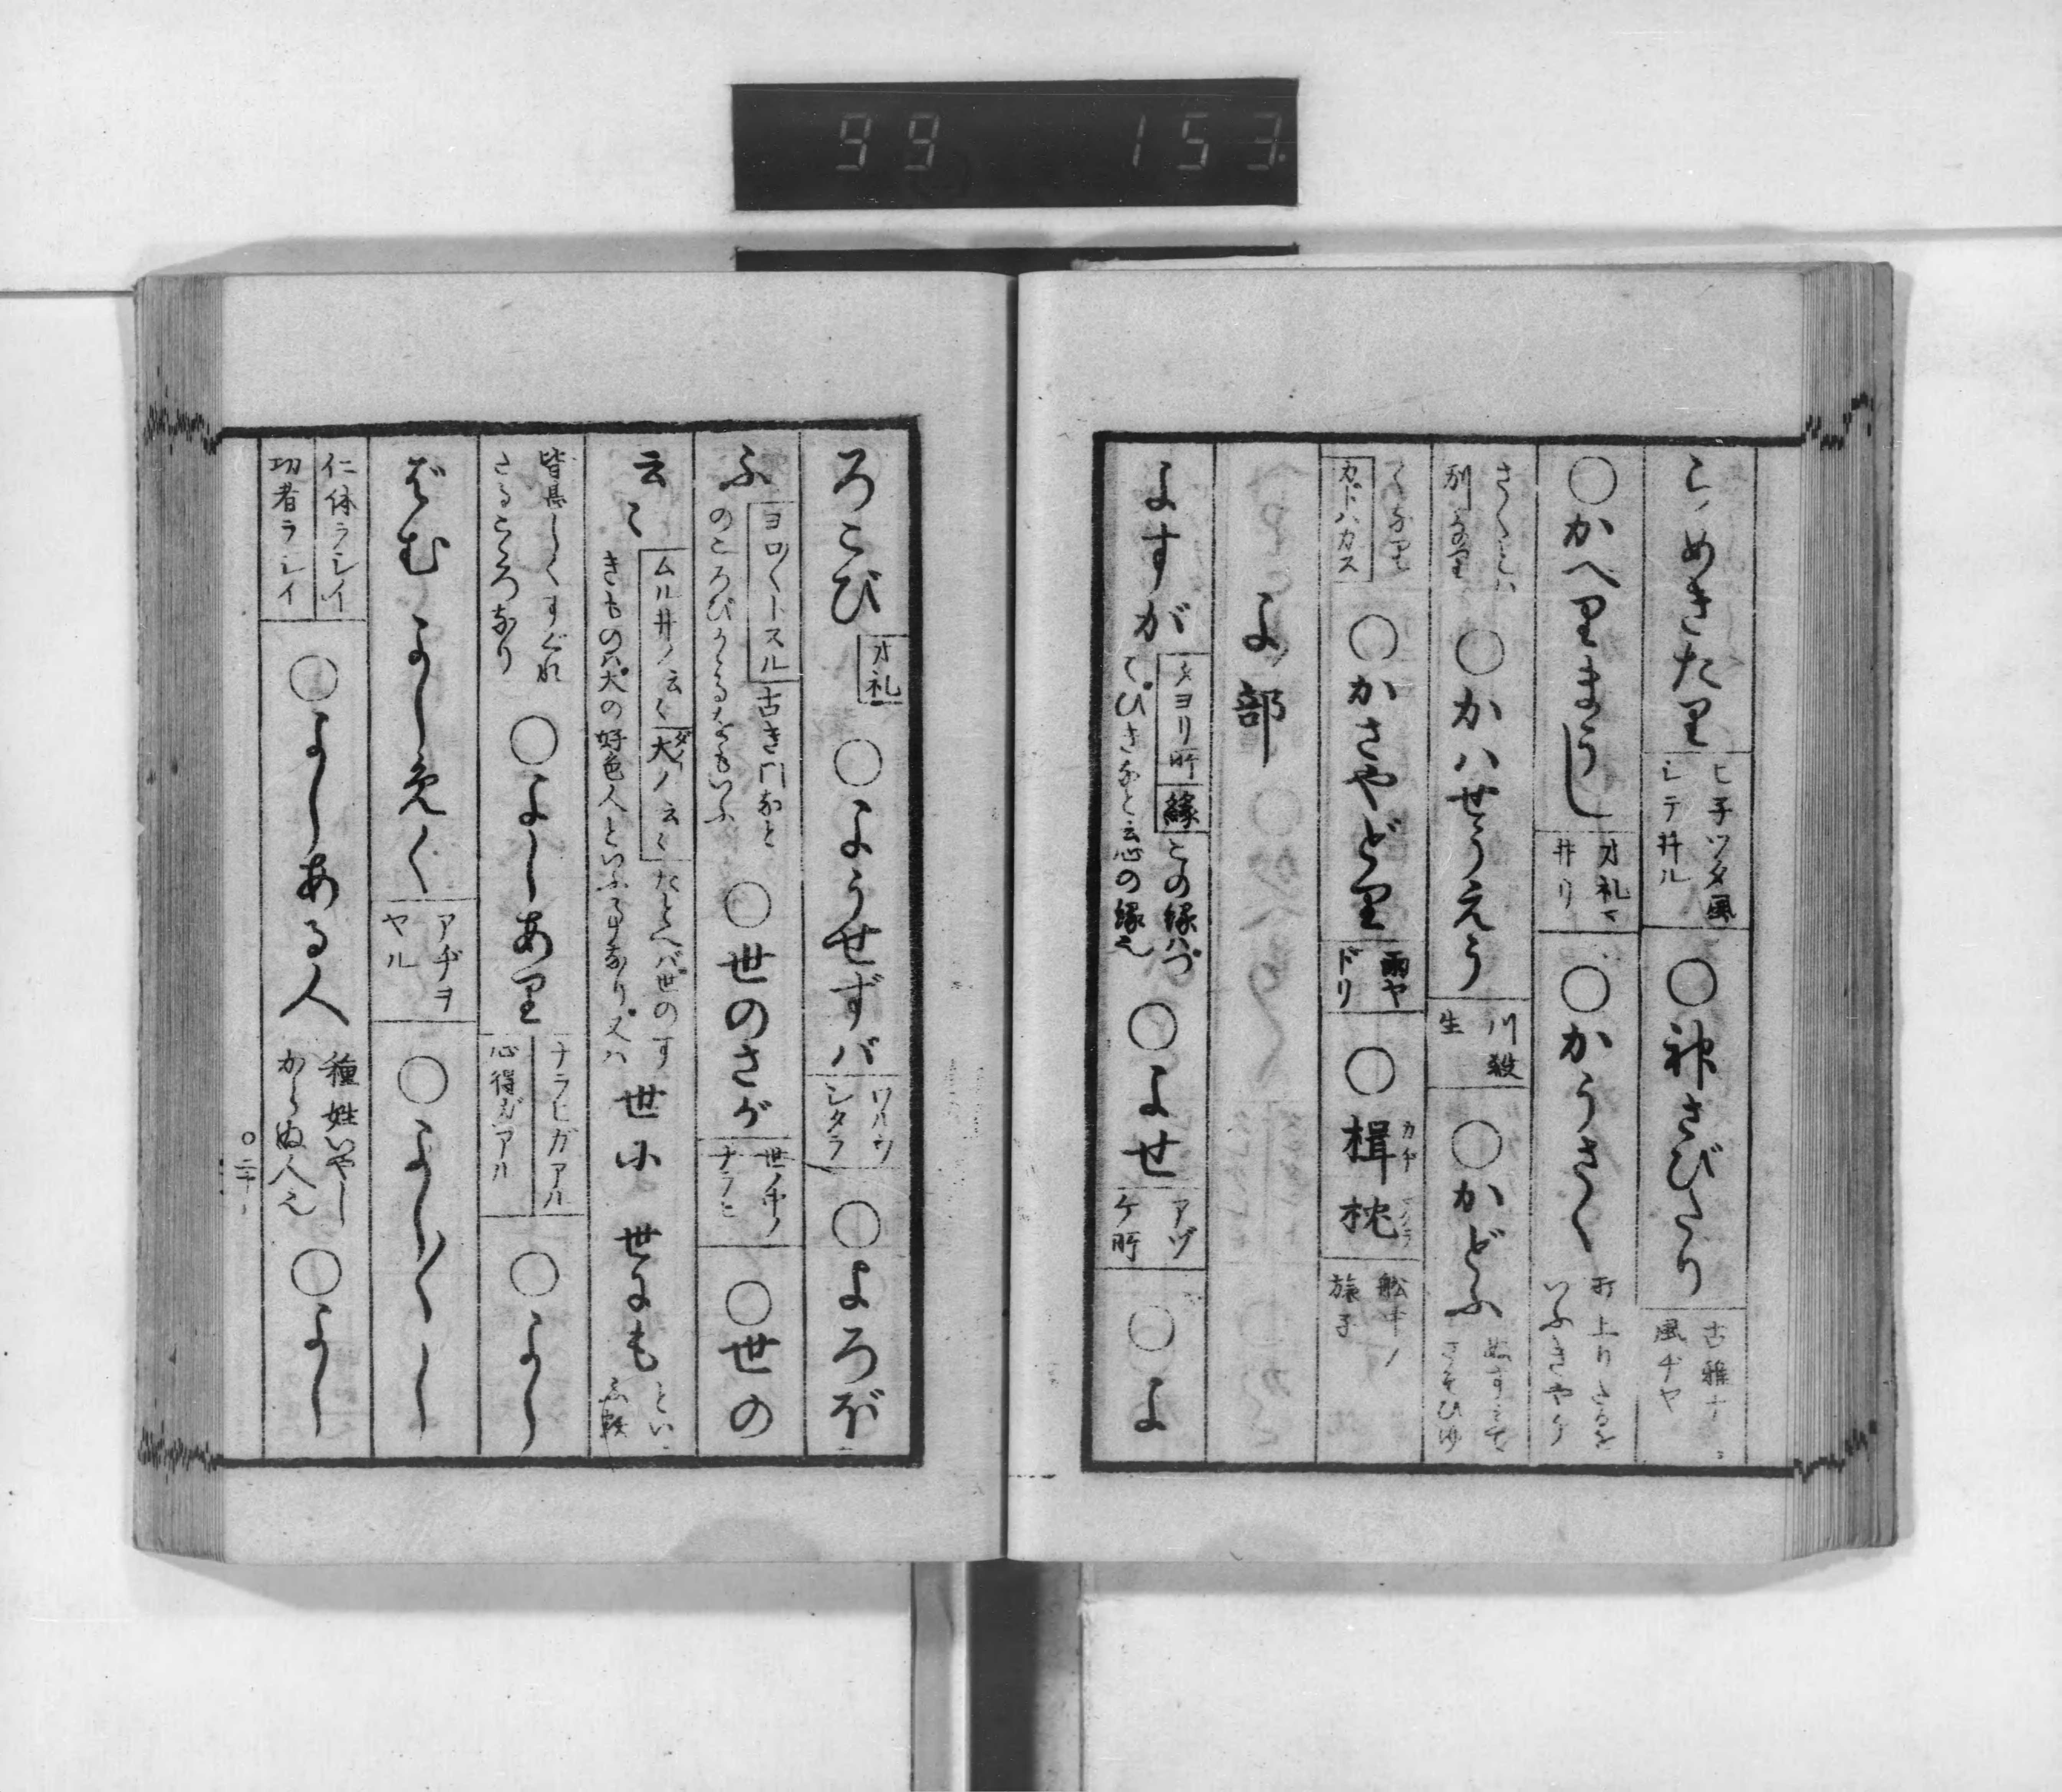 99 153
こめきたり ヒ子ツタ風
シテ井ル ○神さびたり 古雅ナ
風ヂヤ
○かへりまうし オ礼マ
井リ ○かうさく 打上りたるを
いふきやう
さくとハ
別なり ○かハせうえう 川殺
生 ○かどふ ぬすみて
さそひゆ
くなり
カドハカス ○かさやどり 雨ヤ
ドリ ○楫枕 カヂ 舩中ノ
旅子
よ部
よすが タヨリ所 縁 この縁ハ
てびきなと云心の縁也 ○よせ アヅ
ケ所 ○よ
ろこび オ礼 ○ようせずバ ワルウ
シタラ ○よろぼ
ふ ヨロ〱トスル 古き門なと
のころびかゝるをもいふ ○世のさが 世ノ中ノ
ナラヒ ○世の
云〻 ムル井ノ云〻 大ノ云〻 たとへバ世のす
きものハ大の好色人といふ事なり又ハ 世に 世にも とい
ふ歟
皆甚しくすぐれ
たるこころなり ○よしあり ナラヒガアル
心得ガアル ○よし
ばむ よしめく アヂヲ
ヤル ○よし〱し
仁体ラシイ
功者ラシイ ○よしある人 種姓いやし
からぬ人也 ○よし
○二十